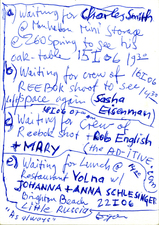 a) Waiting for Charles Smith
@ Manhattan Mini Storage
@ 260 Spring to see his
oak-table 15 I 06 1930
b) Waiting for crew of 16I06
REEBOK shoot to see 1430
space again Sasha
Eisenman)
c) Waiting for Crew of
Reebok shoot + Rob English
+ MARY (the AD-ITIVE.com)
e) Waiting for Lunch @
Restaurant VOLNA w/
JOHANNA + ANNA SCHLESINGER
Brighton Beach 22I06
Little Russia
"As always"